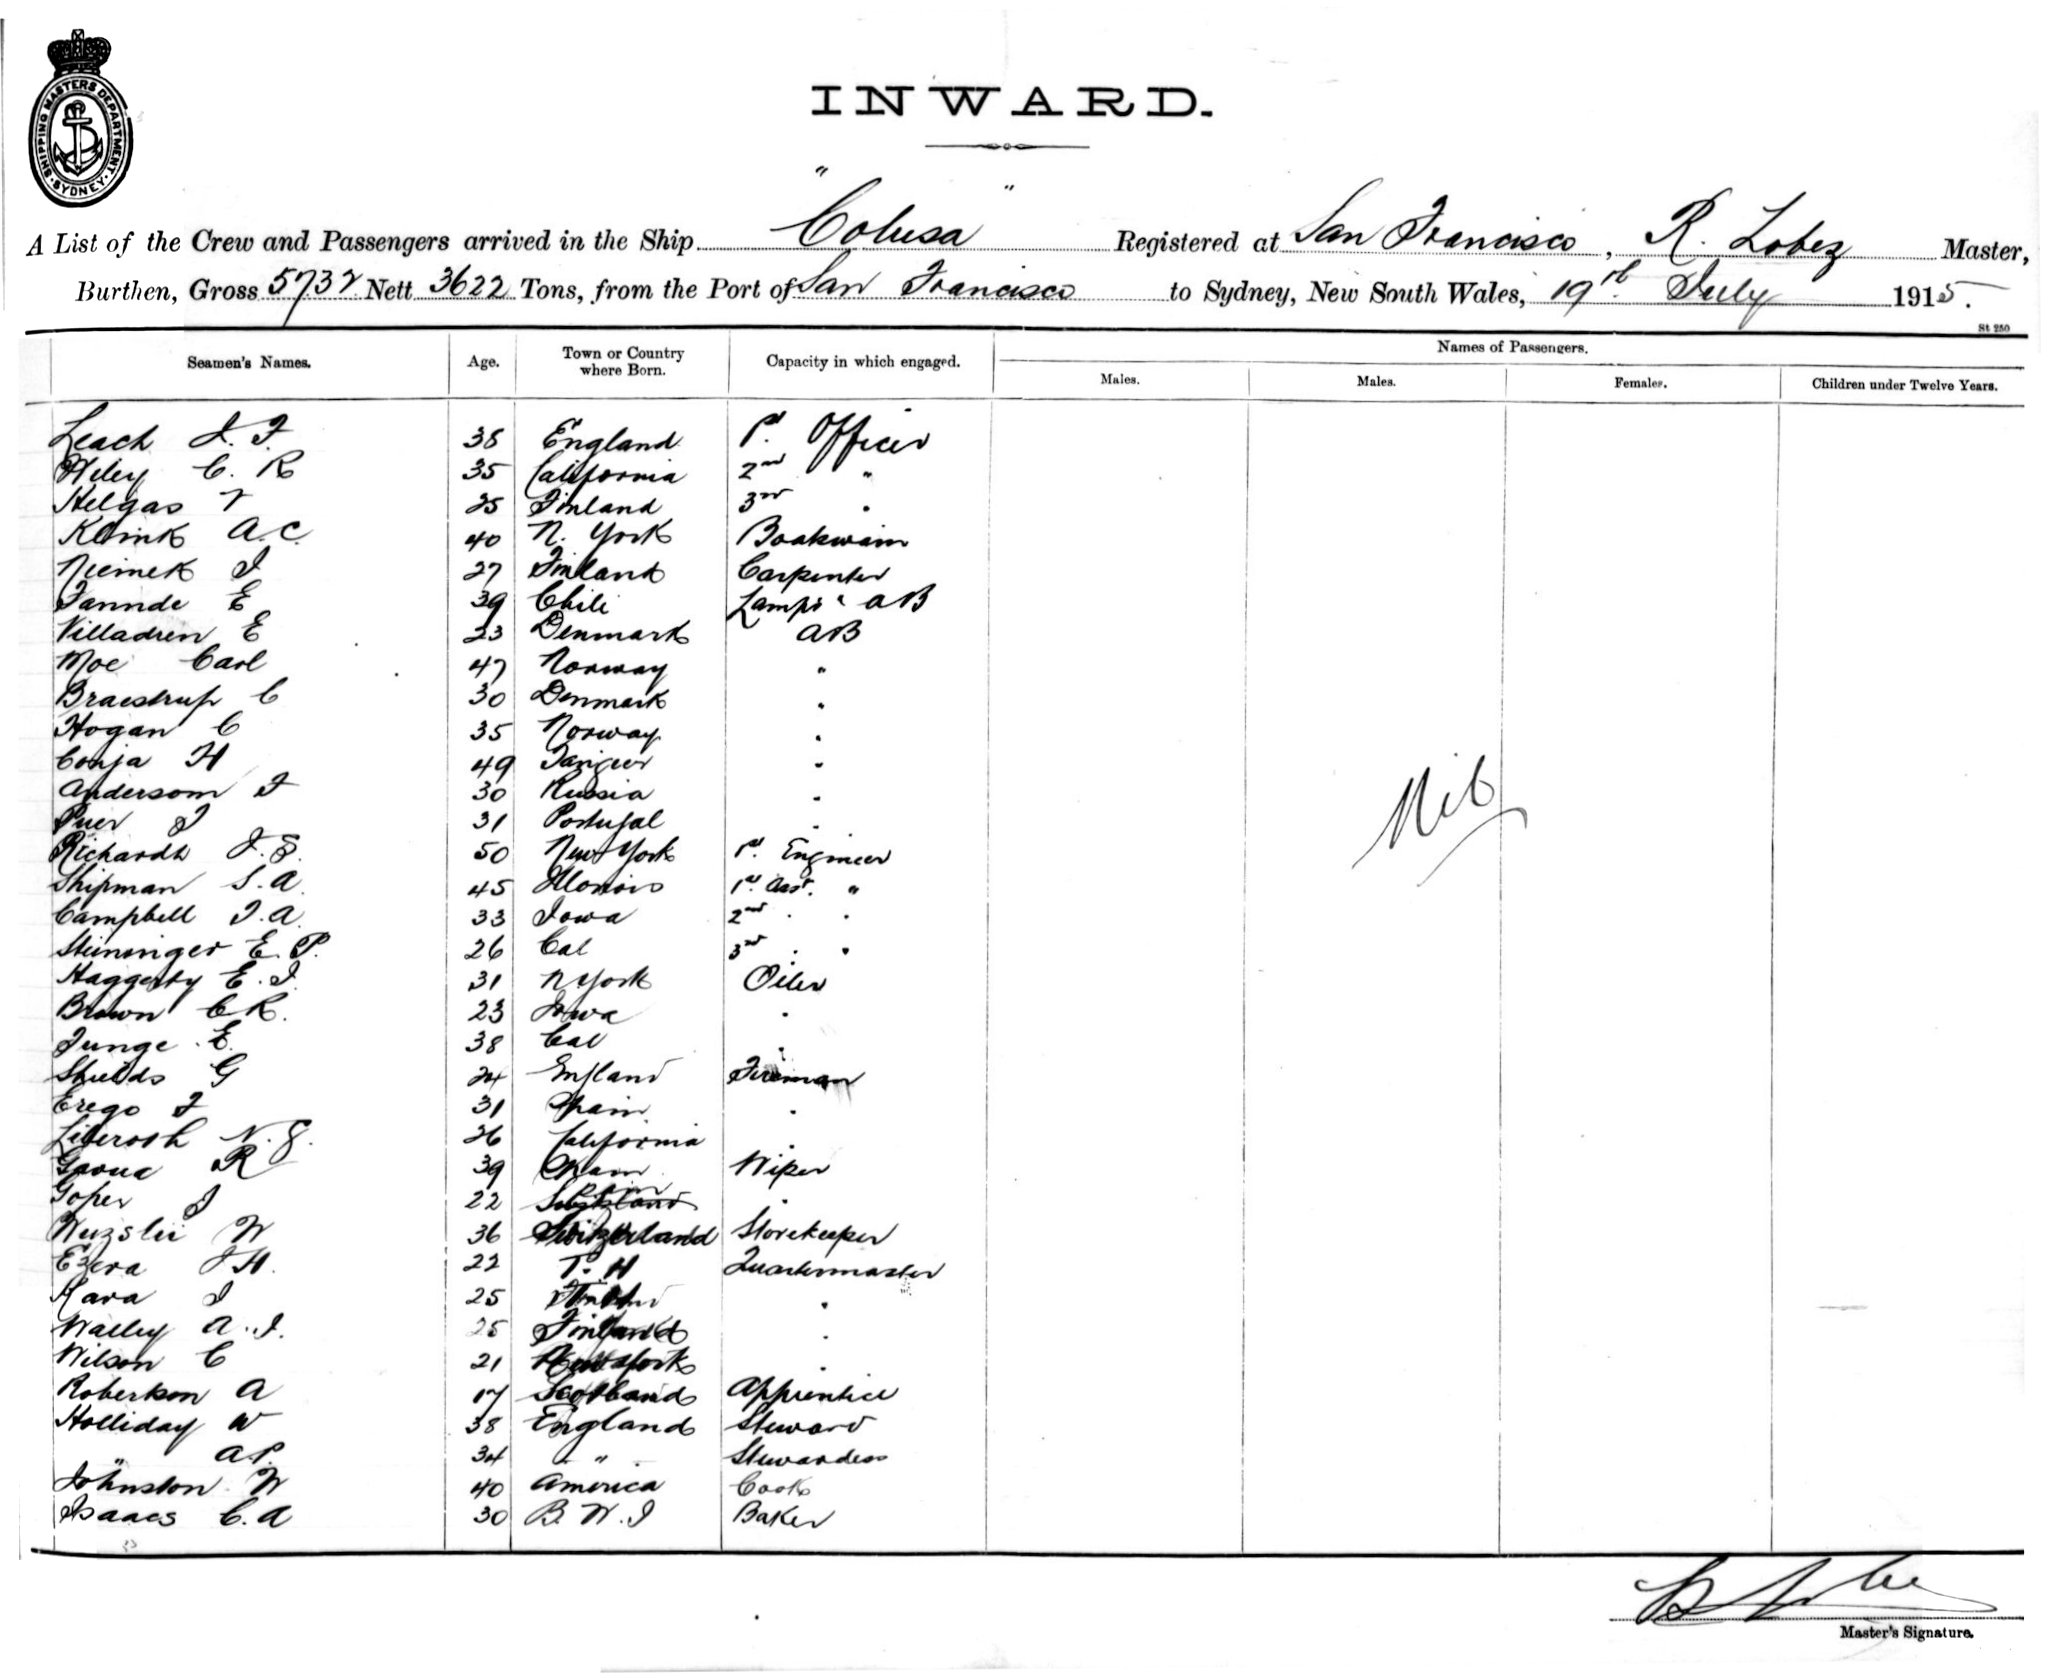 SHIPPING MASTERS DEPARTMENT. SYDNEY.
INWARD.
A List of the Crew and Passengers arrived in the Ship "Colusa" Registered at San Francisco, R. Lobez Master,
Burthen, Gross 5732 Nett 3622 Tons, from the Port of San Francisco to Sydney, New South Wales, 19th July 1915.
St 250
Seamen's Names. Age. Town or Country where Born. Capacity in which engaged. Names of Passengers.
Males. Males. Females. Children under Twelve Years.
Leach J. F. 38 England 1st Officer
Wiley C. R 35 California 2nd "
Helgas 25 Finland 3rd "
Klink A. C. 40 N. York Boatswain
Niemek J 27 Finland Carpenter
E 39 Chili Lamps & AB
Villadsen E 23 Denmark AB
Moe Carl 47 Norway "
Braestrup C 30 Denmark "
Hogan C 35 Norway "
Conja H 49 Tangier "
Anderson F 30 Russia "
Puer J 31 Portugal "
Nil
Richards J. S. 50 New York 1st Engineer
Shipman S. A. 45 Illonois 1st Asst. "
Campbell J. A. 33 Iowa 2nd " "
Steininger E. P. 26 Cal 3rd " "
Haggerty E. J. 31 N York Oiler
Brown C R. 23 Iowa "
Junge E. 38 Cal "
Shields G 24 England Fireman
Erego F 31 Spain "
N. S. 26 California "
R 39 Spain Wiper
Goper J 22 "
W 36 Switzerland Storekeeper
Ezera J H. 22 T. H Quartermaster
Kara J 25 "
Walley A. J. 25 Finland "
Wilson C 21 New York "
Robertson A 17 Scotland Apprentice
Holliday W 38 England Steward
" A. P. 34 " Stewardess
Johnston W 40 America Cook
Isaacs C. A 30 B. W. I Baker
Master's Signature.